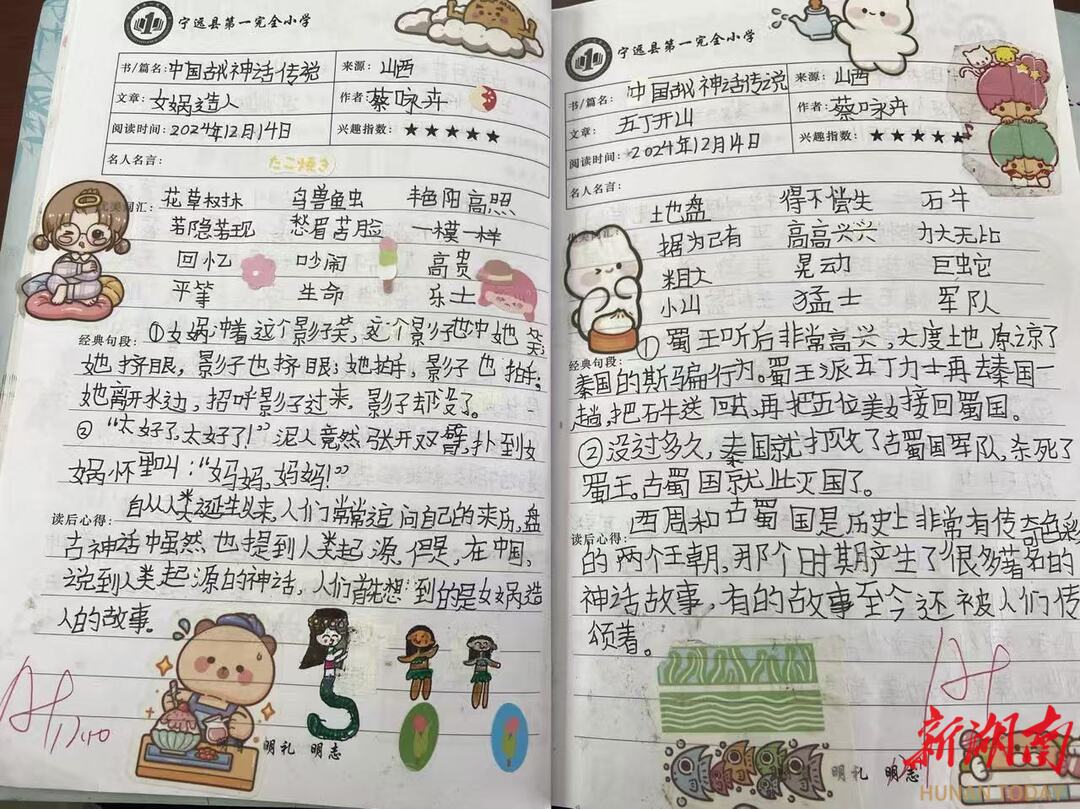 宁远县第一完全小学
书/篇名: 中国古代神话传说 来源: 山西
文章: 女娲造人 作者: 蔡咏卉
阅读时间: 2024年12月14日 兴趣指数: ★★★★★
名人名言:
たこ焼き
词汇: 花草树林 鸟兽鱼虫 艳阳高照
若隐若现 愁眉苦脸 一模一样
回忆 吵闹 高贵
平等 生命 乐土
经典句段: ①女娲冲着这个影子笑,这个影子也冲她笑;
她挤眼,影子也挤眼;她拍手,影子也拍手。
她离开水边,招呼影子过来,影子却没了。
②“太好了,太好了!”泥人竟然张开双臂,扑到女
娲怀里叫:“妈妈,妈妈!”
自从人类诞生以来,人们常常追问自己的来历,盘
读后心得:
古神话中虽然也提到人类起源,但是,在中国,
说到人类起源的神话,人们首先想到的是女娲造
人的故事。
明礼 明志
宁远县第一完全小学
书/篇名: 中国古代神话传说 来源: 山西
文章: 五丁开山 作者: 蔡咏卉
阅读时间: 2024年12月14日 兴趣指数: ★★★★★
名人名言:
土地盘 得不偿失 石牛
据为己有 高高兴兴 力大无比
粗大 晃动 巨蛇
小山 猛士 军队
①蜀王听后非常高兴,大度地原谅了
经典句段:
秦国的欺骗行为。蜀王派五丁力士再去秦国一
趟,把石牛送回去,再把五位美女接回蜀国。
②没过多久,秦国就打败了古蜀国军队,杀死了
蜀王。古蜀国就此灭国了。
西周和古蜀国是历史上非常有传奇色彩
读后心得:
的两个王朝,那个时期产生了很多著名的
神话故事,有的故事至今还被人们传
颂着。
明礼 明志
新湖南
HUNAN TODAY